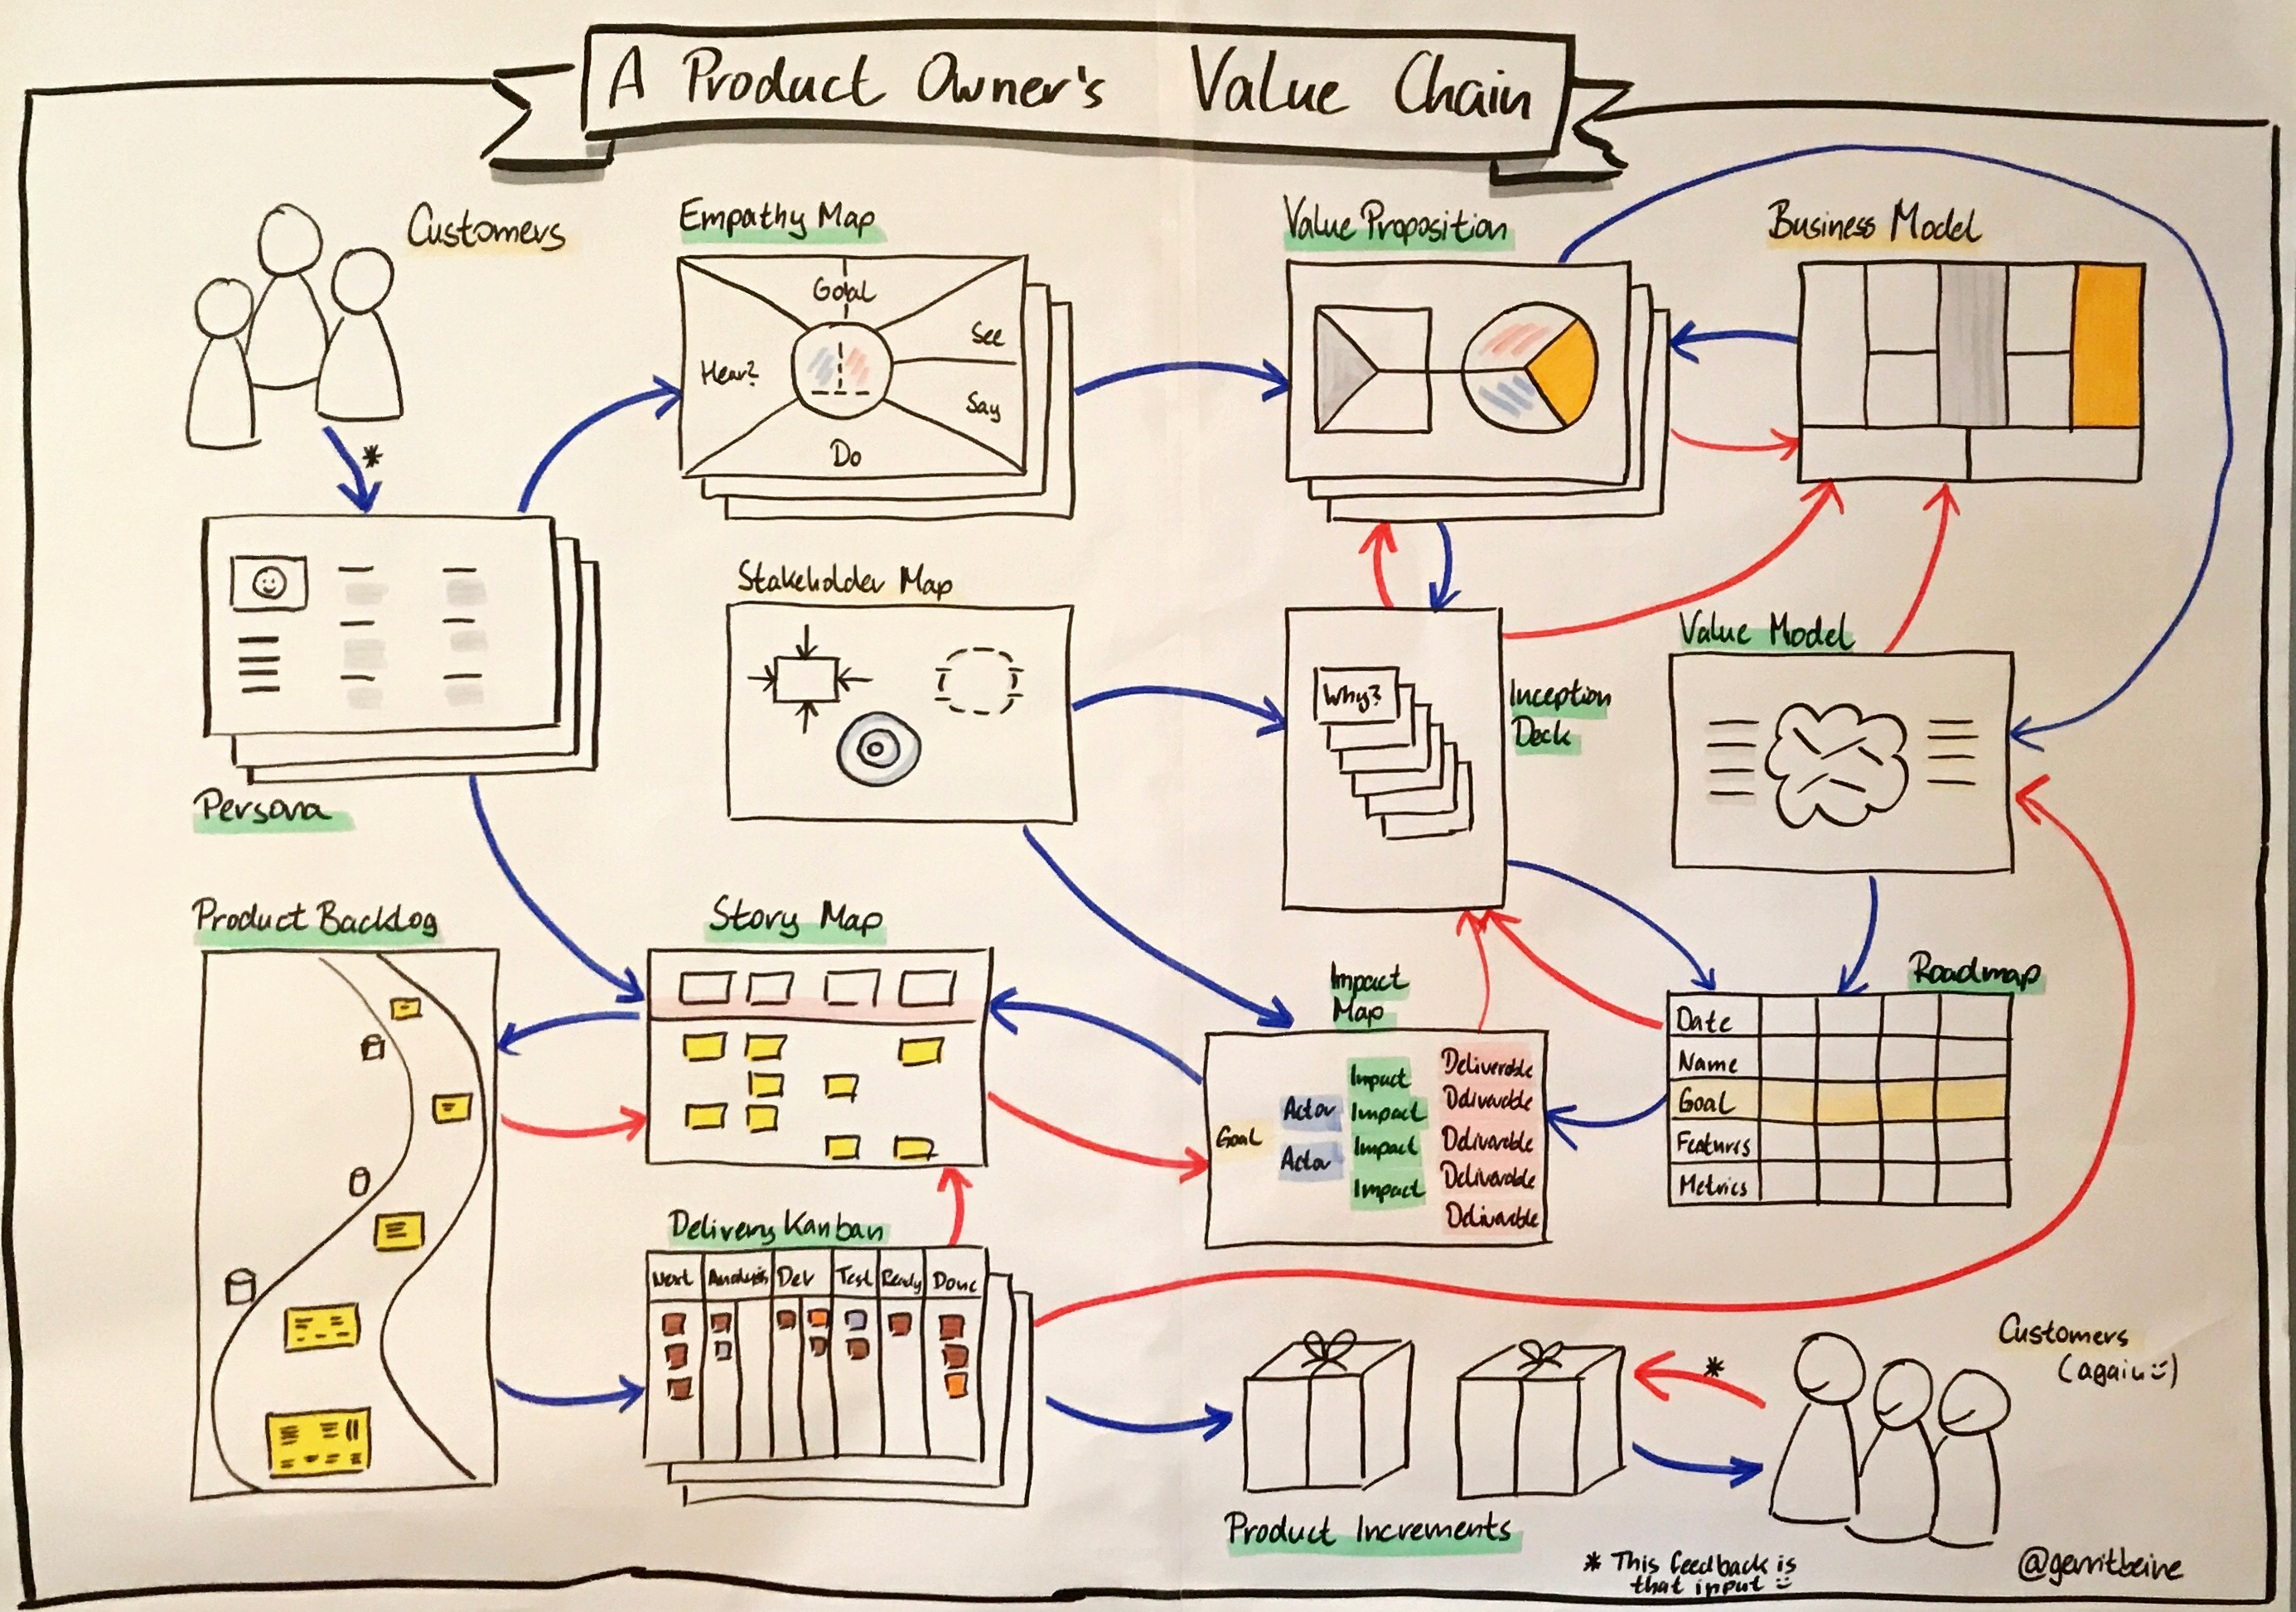 A Product Owner's Value Chain
Customers
Empathy Map
Goal
Hear?
See
Say
Do
Value Proposition
Business Model
Persona
Stakeholder Map
Why?
Inception
Deck
Value Model
Product Backlog
Story Map
Impact
Map
Goal
Actor
Actor
Impact
Impact
Impact
Impact
Deliverable
Deliverable
Deliverable
Deliverable
Deliverable
Roadmap
Date
Name
Goal
Features
Metrics
Delivery Kanban
Next Analysis Dev Test Ready Done
Product Increments
Customers
(again :-)
* This feedback is
that input :-)
@gerritbeine
*
*